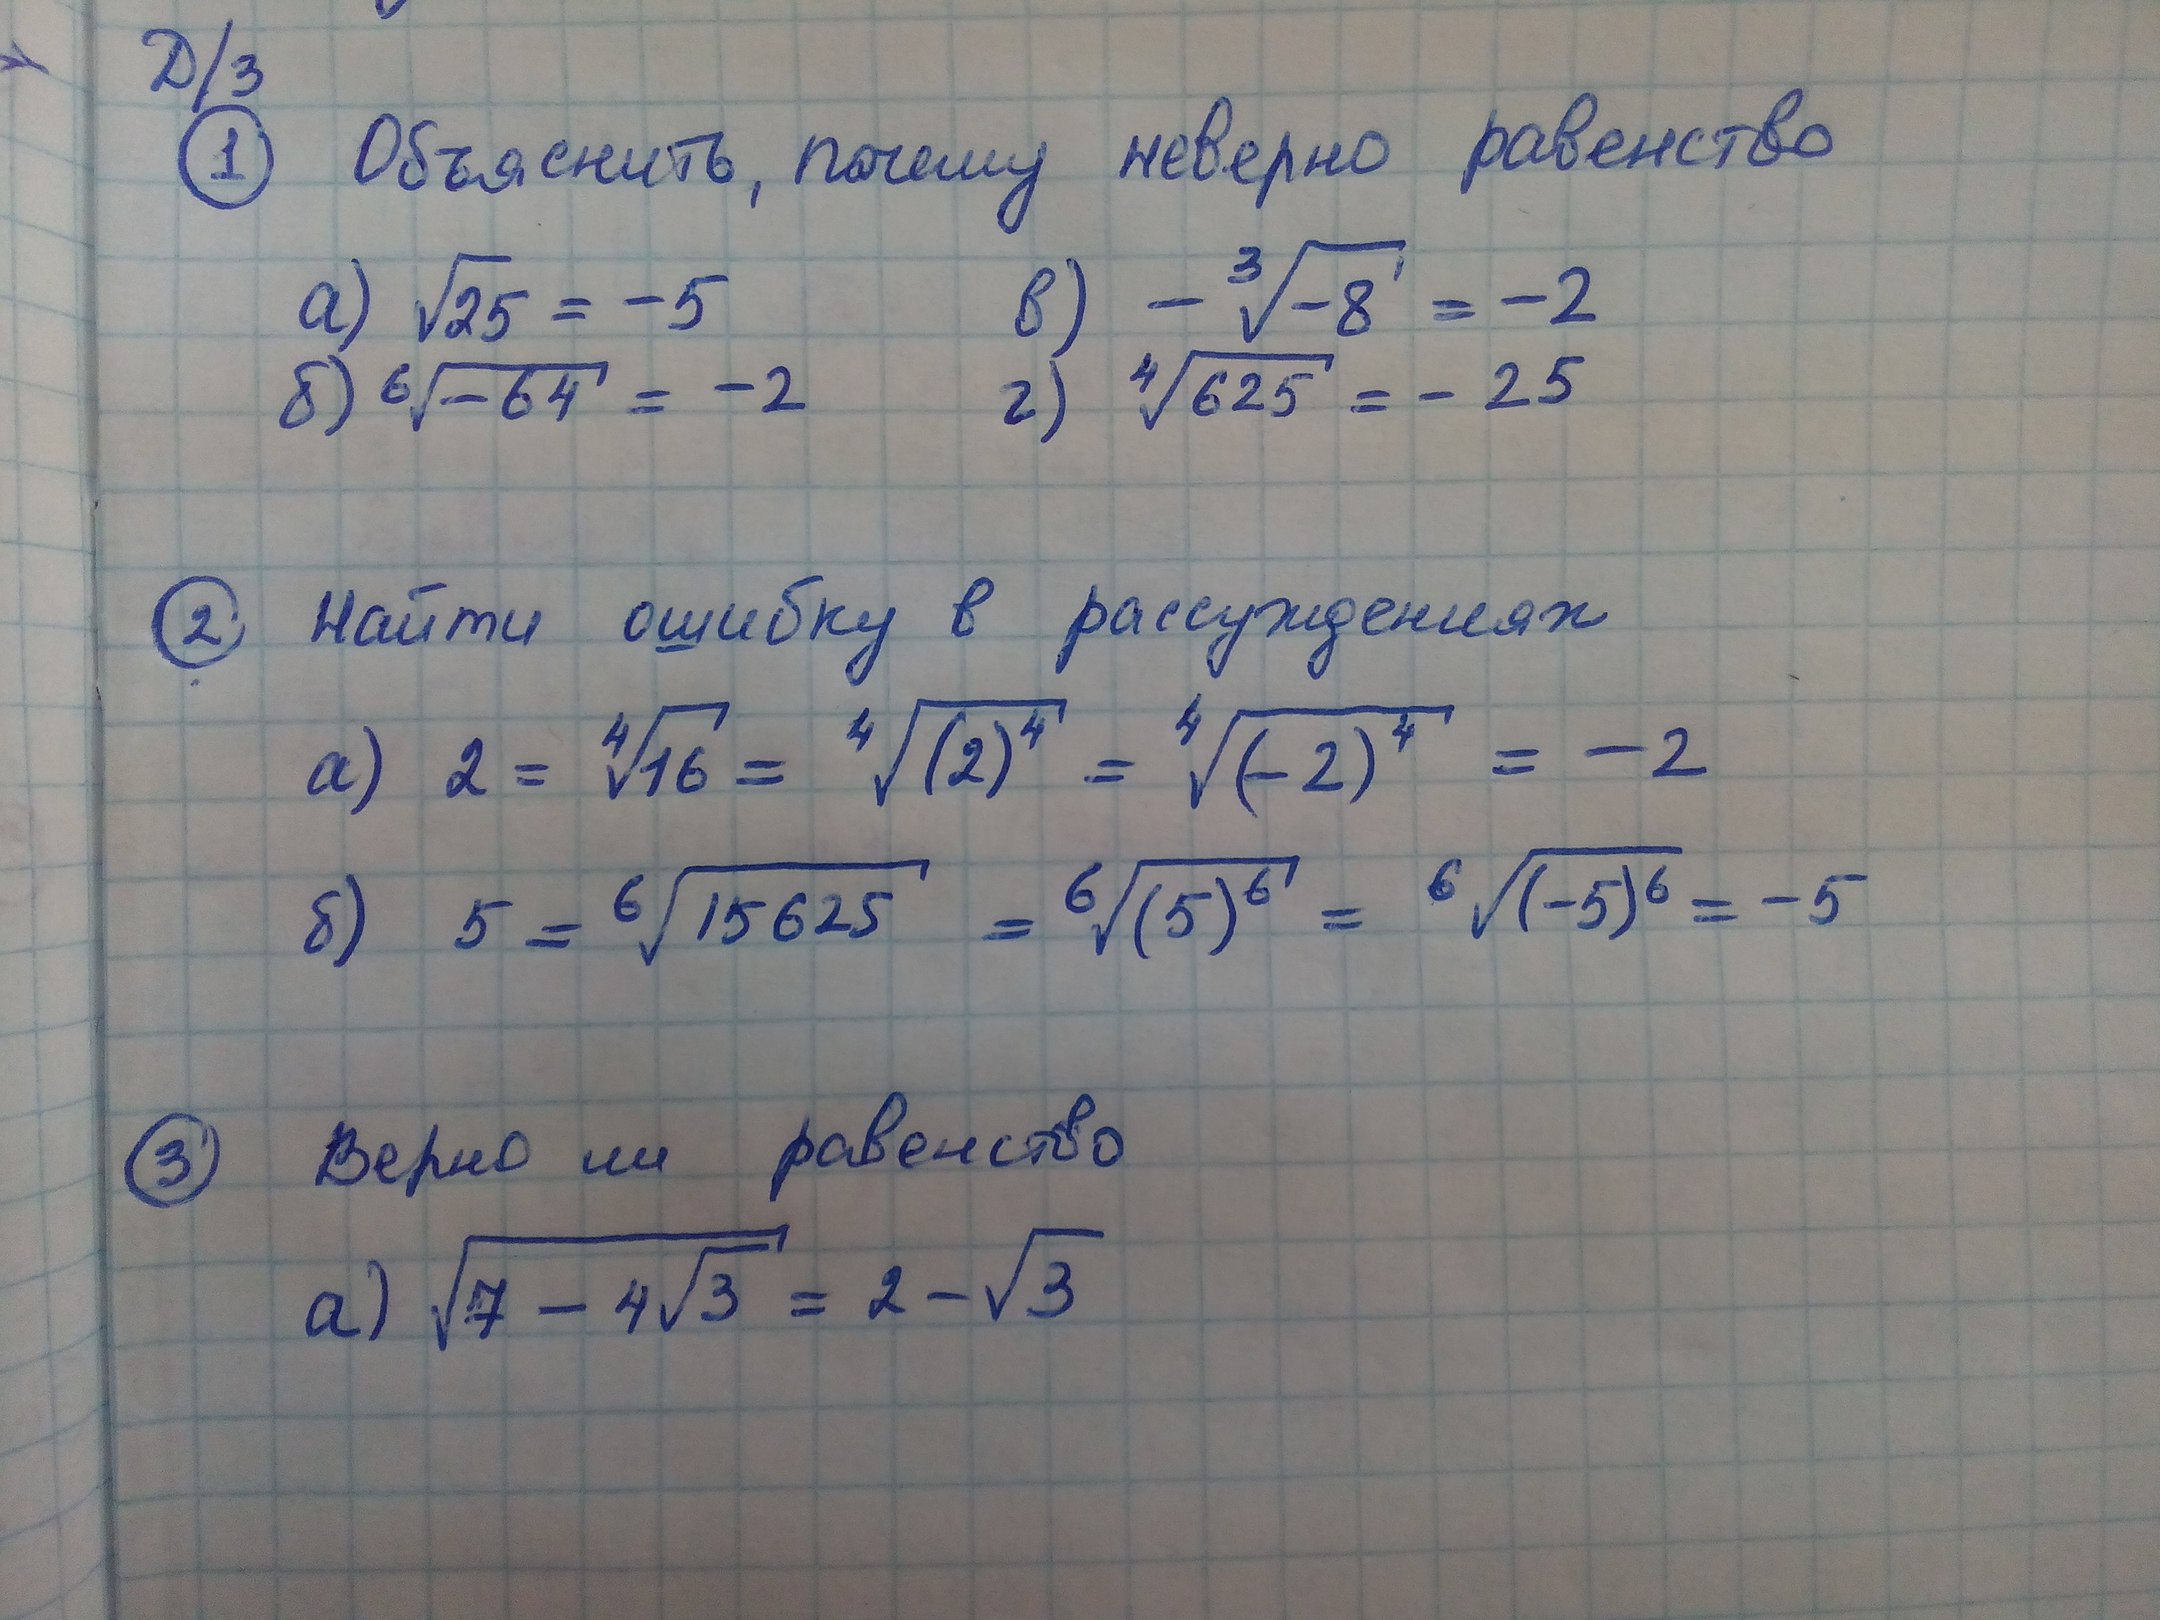 Д/з
① Объяснить, почему неверно равенство
а) √25 = -5 в) -∛-8 = -2
б) ⁶√-64 = -2 г) ⁴√625 = -25
② Найти ошибку в рассуждениях
а) 2 = ⁴√16 = ⁴√(2)⁴ = ⁴√(-2)⁴ = -2
б) 5 = ⁶√15625 = ⁶√(5)⁶ = ⁶√(-5)⁶ = -5
③ Верно ли равенство
а) √(7 - 4√3) = 2 - √3